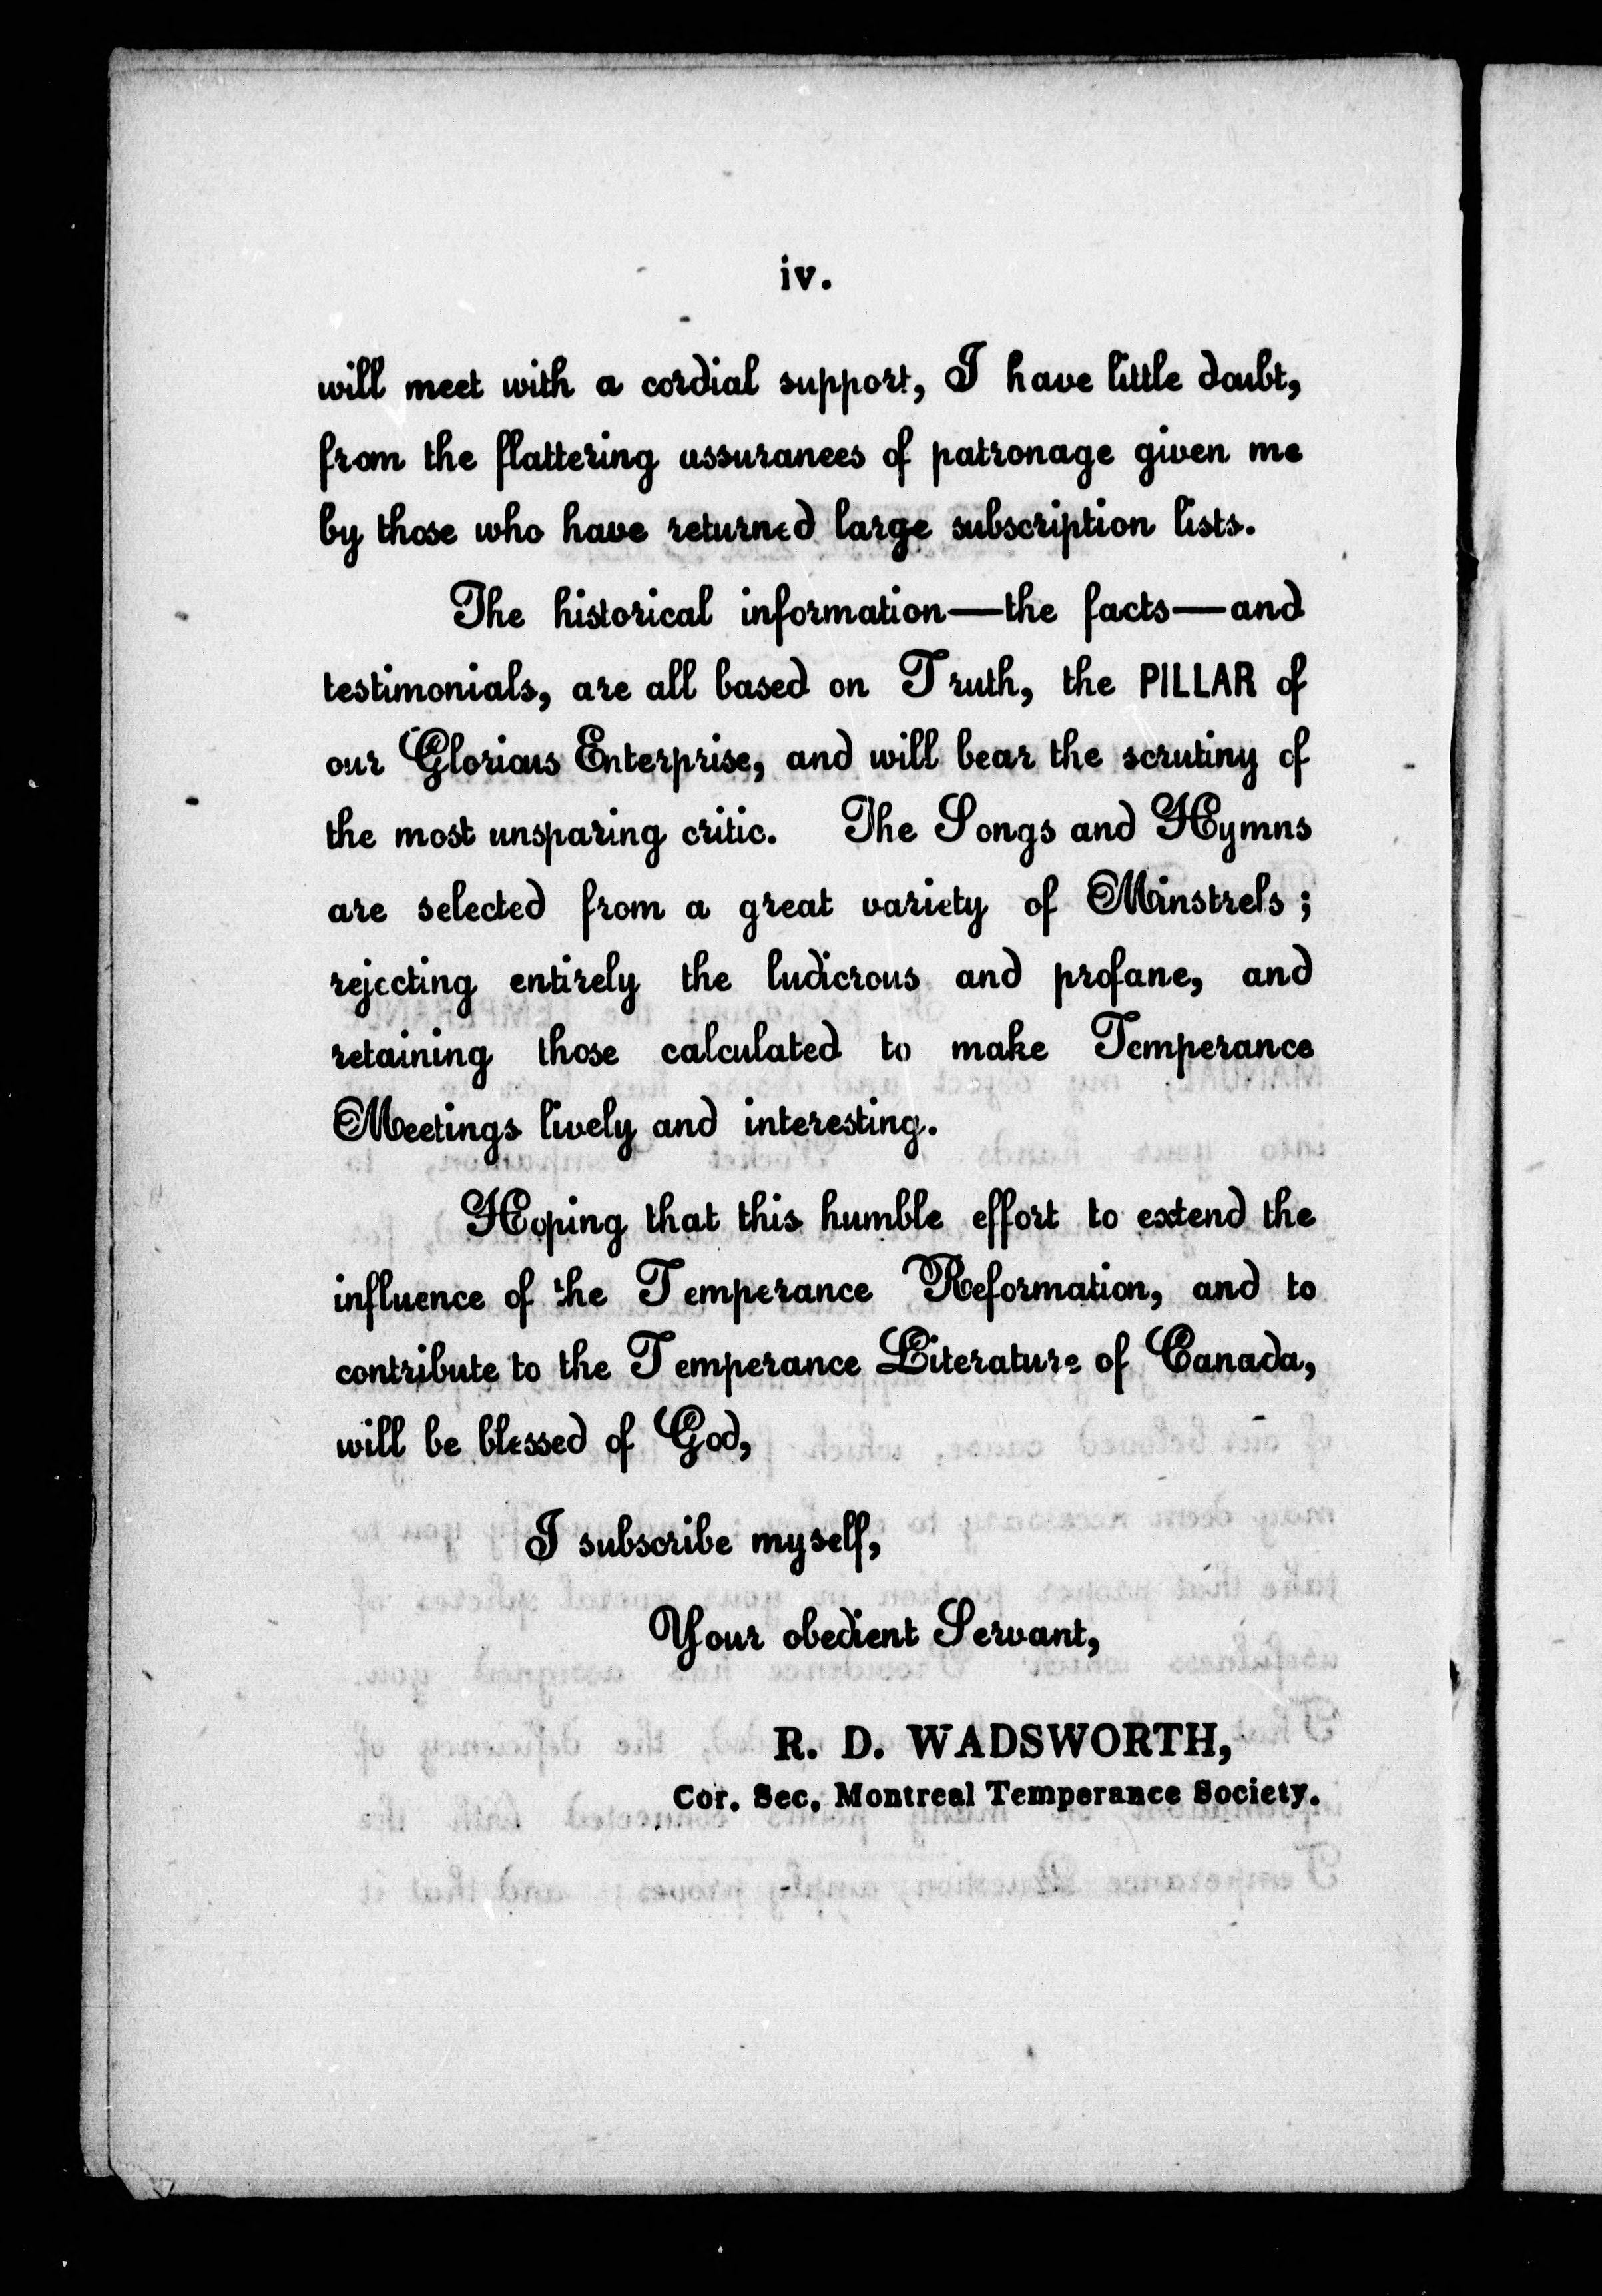 iv.
will meet with a cordial support, I have little doubt,
from the flattering assurances of patronage given me
by those who have returned large subscription lists.
The historical information—the facts—and
testimonials, are all based on Truth, the PILLAR of
our Glorious Enterprise, and will bear the scrutiny of
the most unsparing critic. The Songs and Hymns
are selected from a great variety of Minstrels;
rejecting entirely the ludicrous and profane, and
retaining those calculated to make Temperance
Meetings lively and interesting.
Hoping that this humble effort to extend the
influence of the Temperance Reformation, and to
contribute to the Temperance Literature of Canada,
will be blessed of God,
I subscribe myself,
Your obedient Servant,
R. D. WADSWORTH,
Cor. Sec. Montreal Temperance Society.